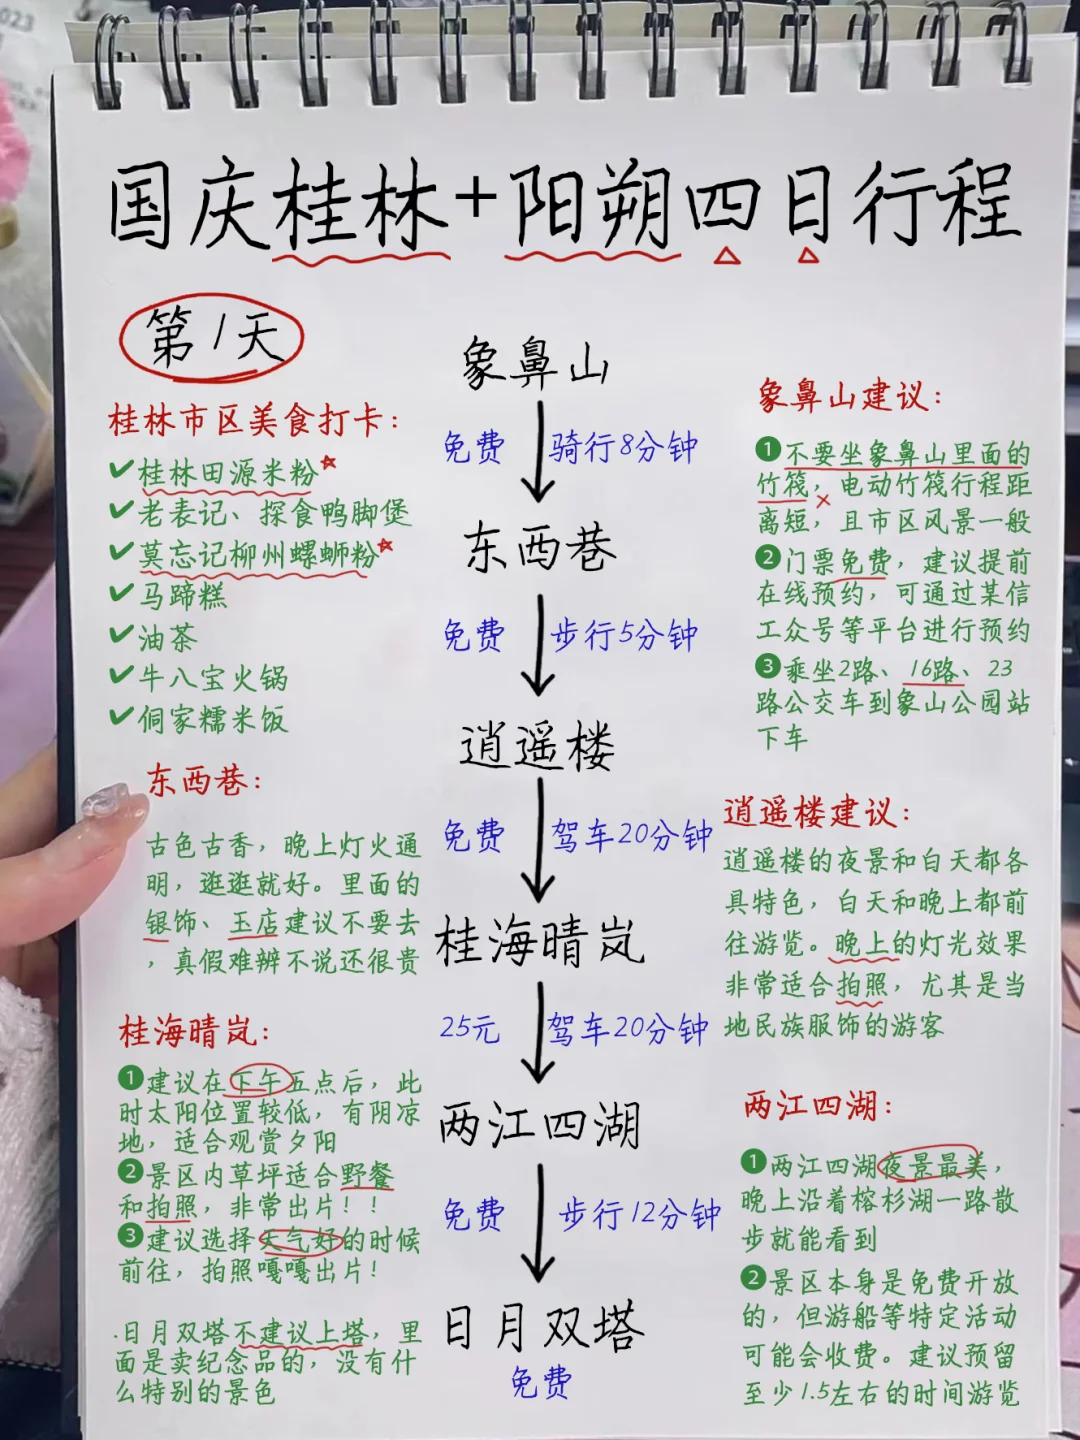 023
国庆桂林+阳朔四日行程
第1天
桂林市区美食打卡:
✔桂林田源米粉
✔老表记、探食鸭脚煲
✔莫忘记柳州螺蛳粉
✔马蹄糕
✔油茶
✔牛八宝火锅
✔侗家糯米饭
东西巷:
古色古香，晚上灯火通
明，逛逛就好。里面的
银饰、玉店建议不要去
，真假难辨不说还很贵
桂海晴岚:
❶建议在下午五点后，此
时太阳位置较低，有阴凉
地，适合观赏夕阳
❷景区内草坪适合野餐
和拍照，非常出片！！
❸建议选择天气好的时候
前往，拍照嘎嘎出片！
.日月双塔不建议上塔，里
面是卖纪念品的，没有什
么特别的景色
象鼻山
免费 骑行8分钟
东西巷
免费 步行5分钟
逍遥楼
免费 驾车20分钟
桂海晴岚
25元 驾车20分钟
两江四湖
免费 步行12分钟
日月双塔
免费
象鼻山建议:
❶不要坐象鼻山里面的
竹筏，电动竹筏行程距
离短，且市区风景一般
❷门票免费，建议提前
在线预约，可通过某信
工众号等平台进行预约
❸乘坐2路、16路、23
路公交车到象山公园站
下车
逍遥楼建议:
逍遥楼的夜景和白天都各
具特色，白天和晚上都前
往游览。晚上的灯光效果
非常适合拍照，尤其是当
地民族服饰的游客
两江四湖:
❶两江四湖夜景最美，
晚上沿着榕杉湖一路散
步就能看到
❷景区本身是免费开放
的，但游船等特定活动
可能会收费。建议预留
至少1.5左右的时间游览